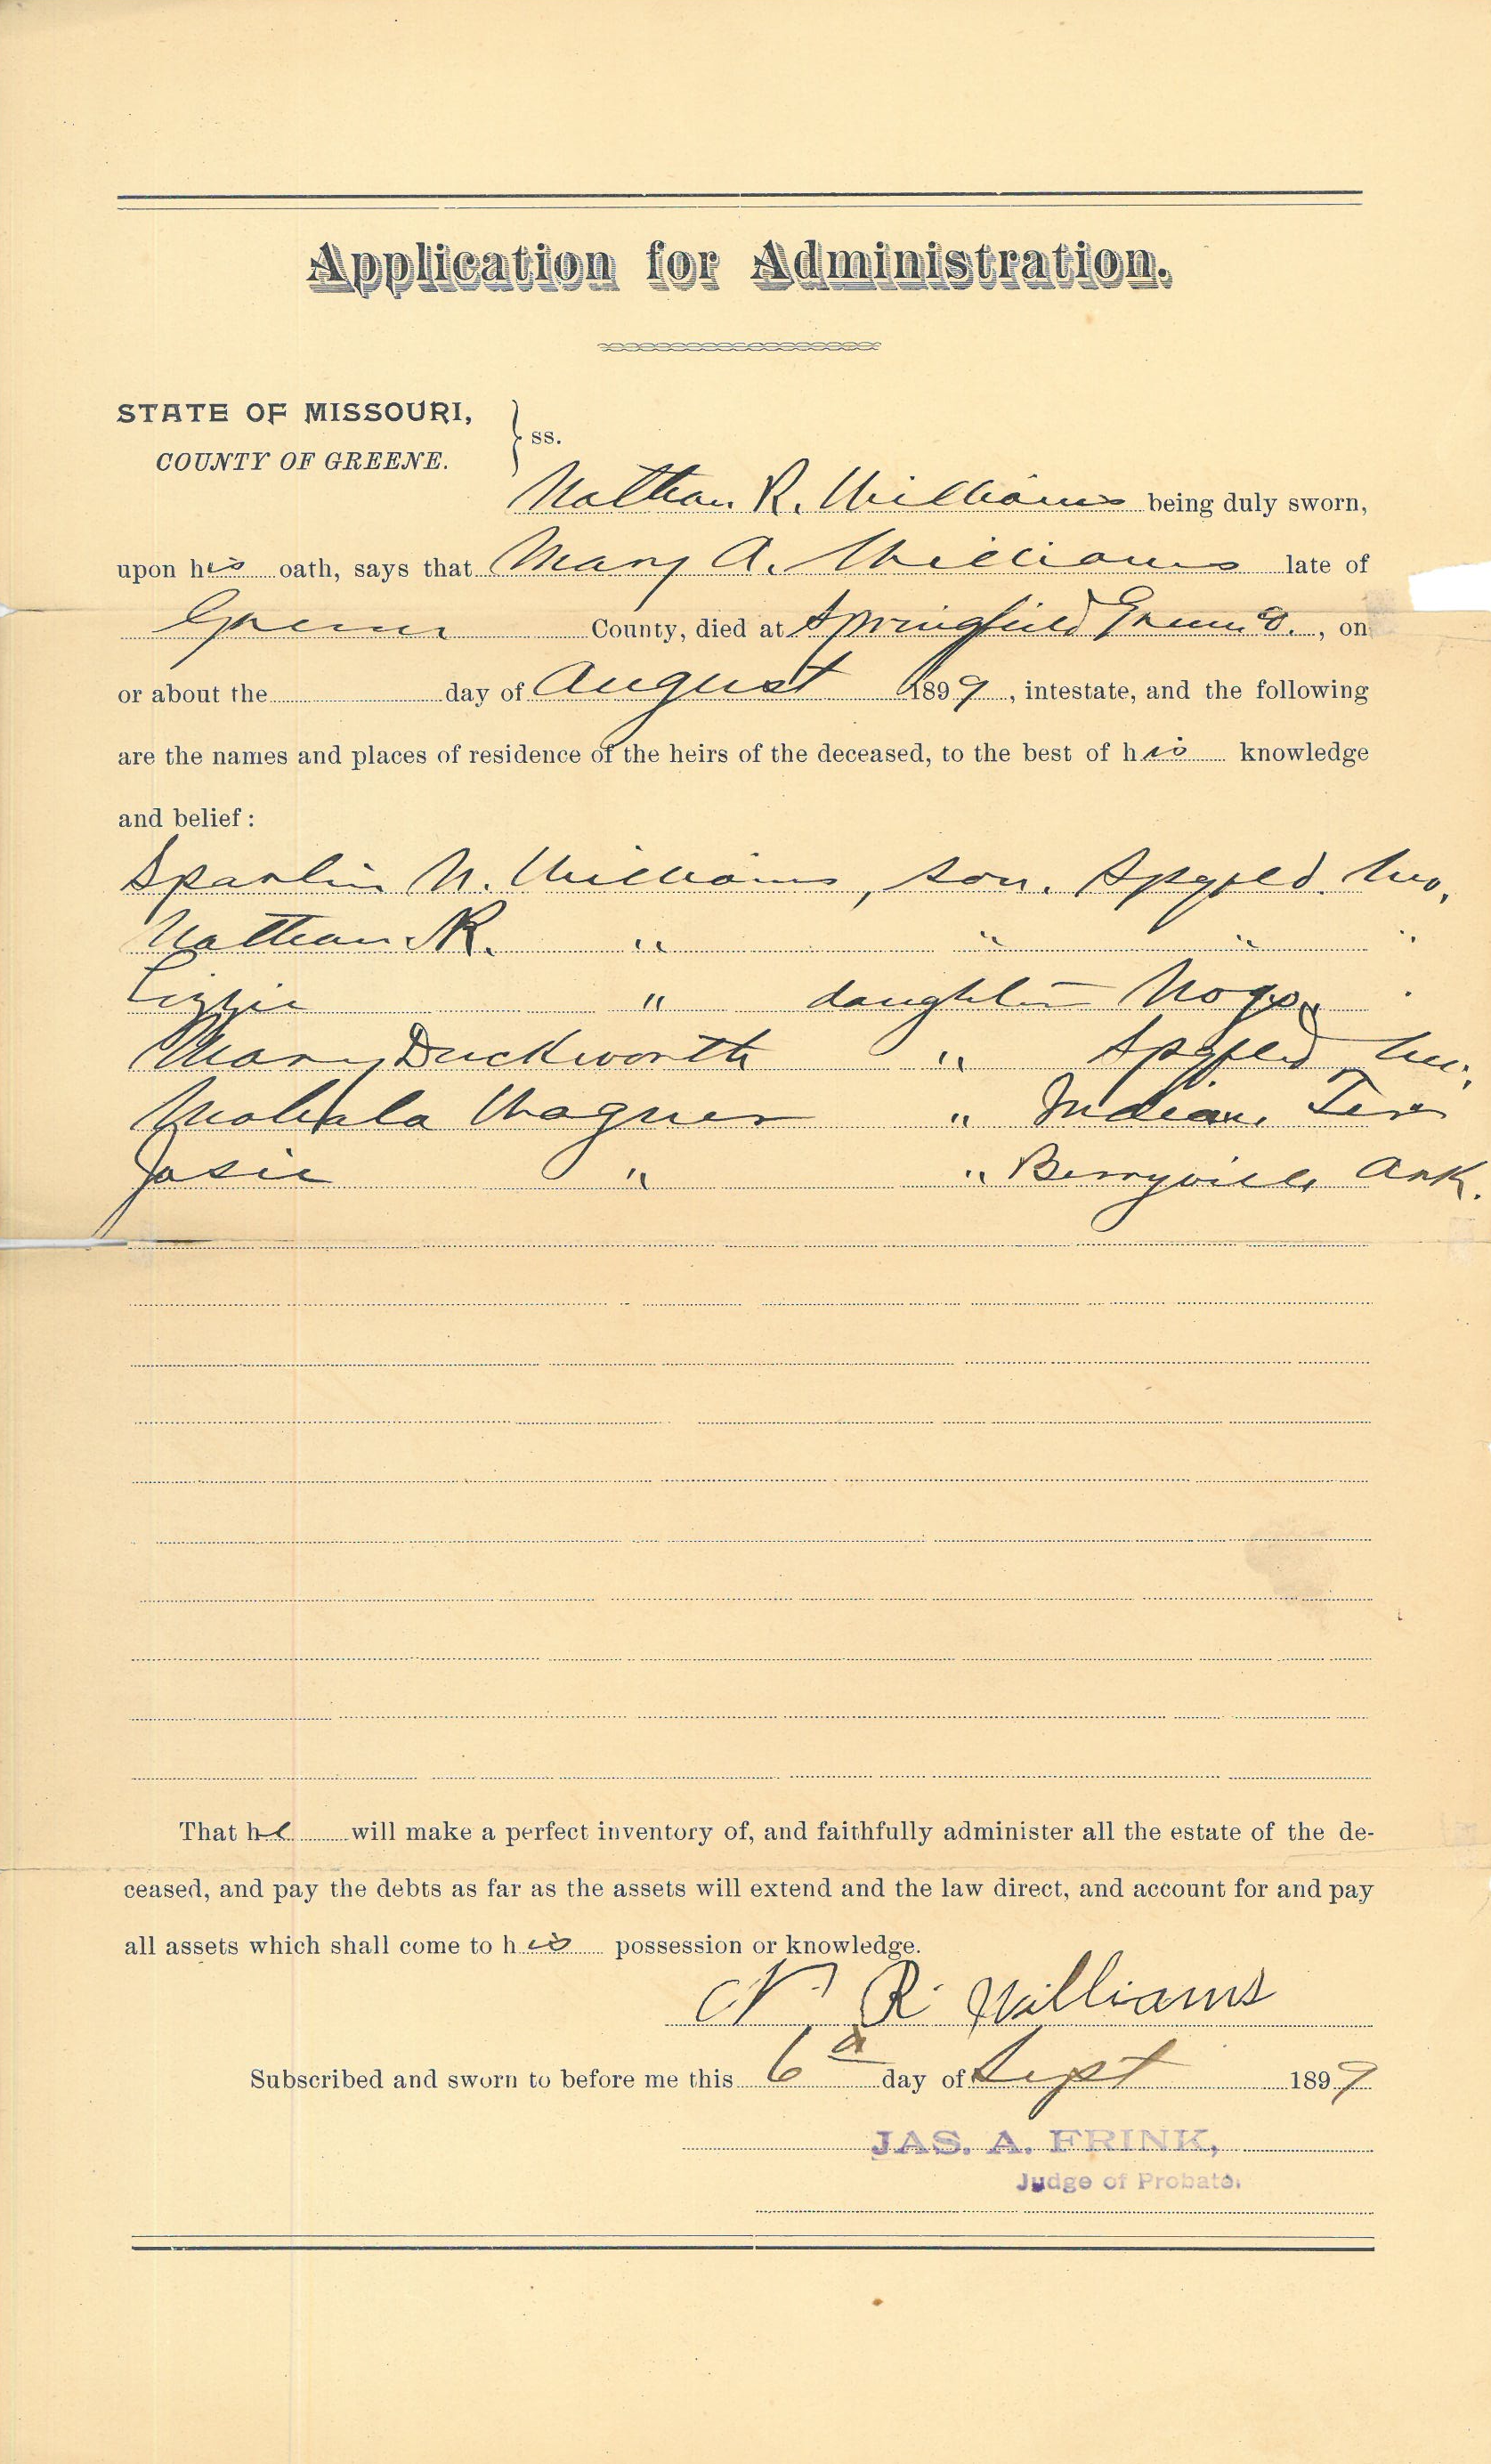 Application for Administration.
STATE OF MISSOURI,
COUNTY OF GREENE. } ss.
Nathan R. Williams being duly sworn,
upon his oath, says that Mary A. Williams late of
Greene County, died at Springfield Greene Co., on
or about the day of August 1899, intestate, and the following
are the names and places of residence of the heirs of the deceased, to the best of his knowledge
and belief:
Sparlin N. Williams, son. Spgfld. Mo.
Nathan R. " " " "
Lizzie " daughter Nogo
Mary Duckworth " Spgfld Mo.
Mahala Wagner " Indian Ter
Josie " " Berryville Ark.
That he will make a perfect inventory of, and faithfully administer all the estate of the de-
ceased, and pay the debts as far as the assets will extend and the law direct, and account for and pay
all assets which shall come to his possession or knowledge.
N R Williams
Subscribed and sworn to before me this 6th day of Sept 1899
JAS. A. FRINK,
Judge of Probate.